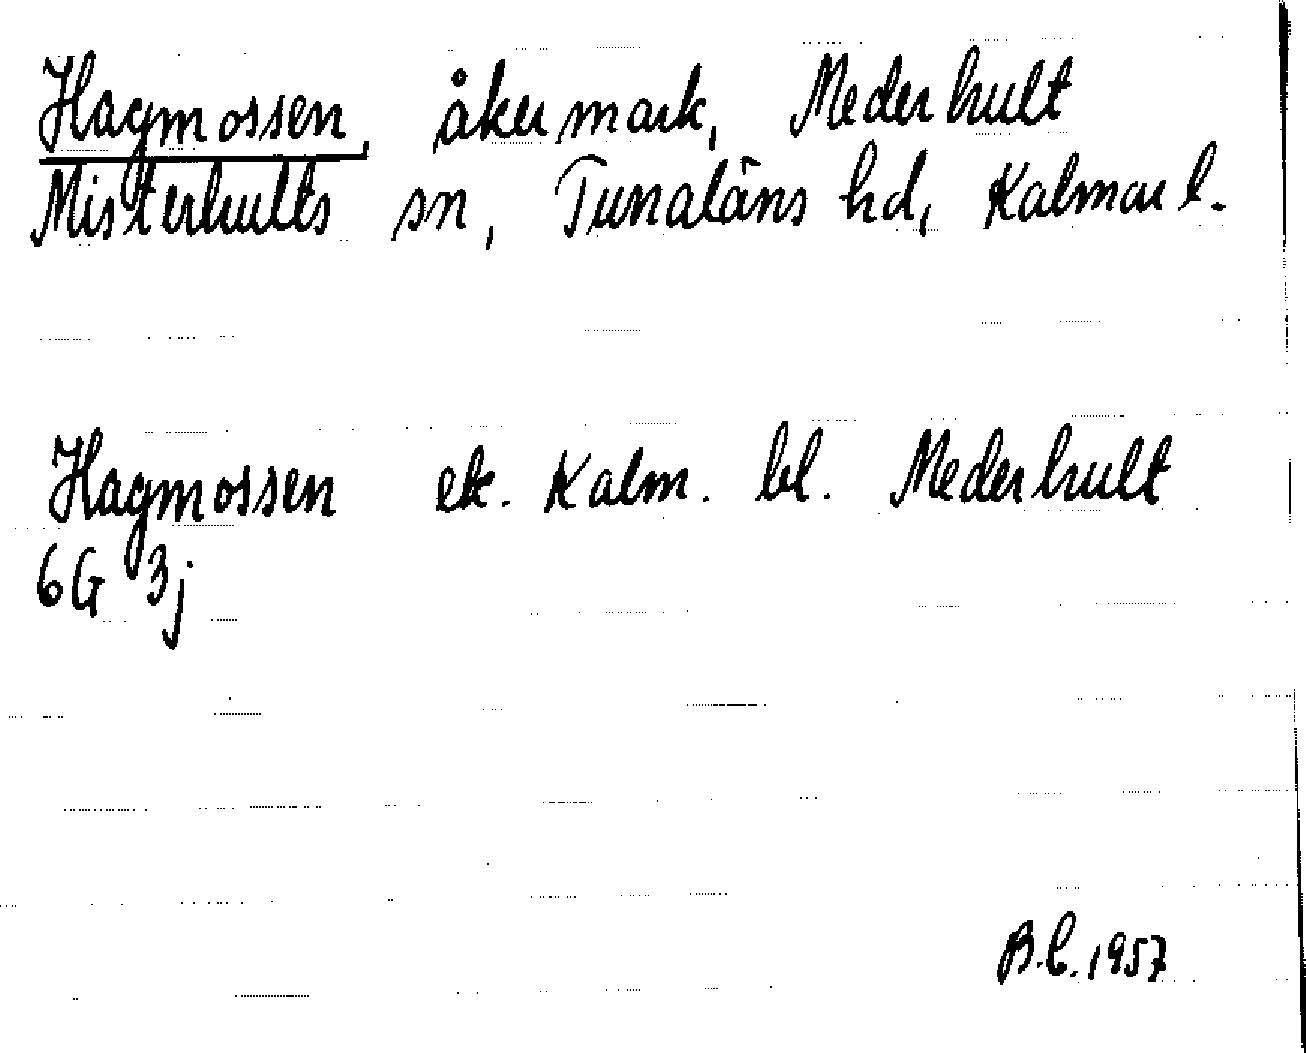 Hagmossen, åkermark, Mederhult
Misterhults sn, Tunaläns hd, Kalmar l.
Hagmossen ek. Kalm. bl. Mederhult
6G 3j
B.C. 1957